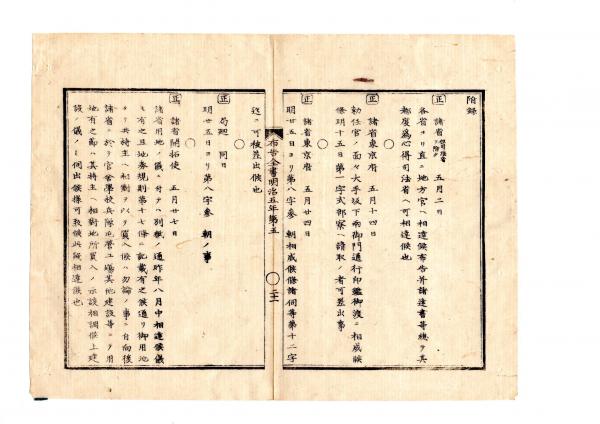 附録
正 諸省 五月二日
各省ヨリ直ニ地方官ヘ相達候布告并諸達書等總テ其
都度為心得司法省ヘ可相達候也
○
正 諸省東京府 五月十四日
勅任官ノ面々大手坂下両御門通行印鑑御渡ニ相成候
條明十五日第一字式部寮ヘ請取ノ者可差出事
○
正 諸省東京府 五月廿四日
明廿五日ヨリ第八字参 朝相成候條諸伺等第十二字
迄ニ可被差出候也
布告全書明治五年第五
○
正 同日
明廿五日ヨリ第八字参 朝ノ事
○
正 諸省開拓使 五月廿七日
諸省用地ノ儀ニ付テハ別紙ノ通昨年八月中相達候儀
モ有之且地券規則第十七條ニ記載有之候通リ御用地
タリ共持主ヘ相對ヲ以テ買入候ハ勿論ノ事ニ自向後
諸省ニ於テ官舎學校兵隊屯營工場其他建設等ニテ用
地有之節ハ其持主ヘ相對地所買入ノ示談相調候上建
設ノ儀ノミ伺出候様可致候此段相達候也